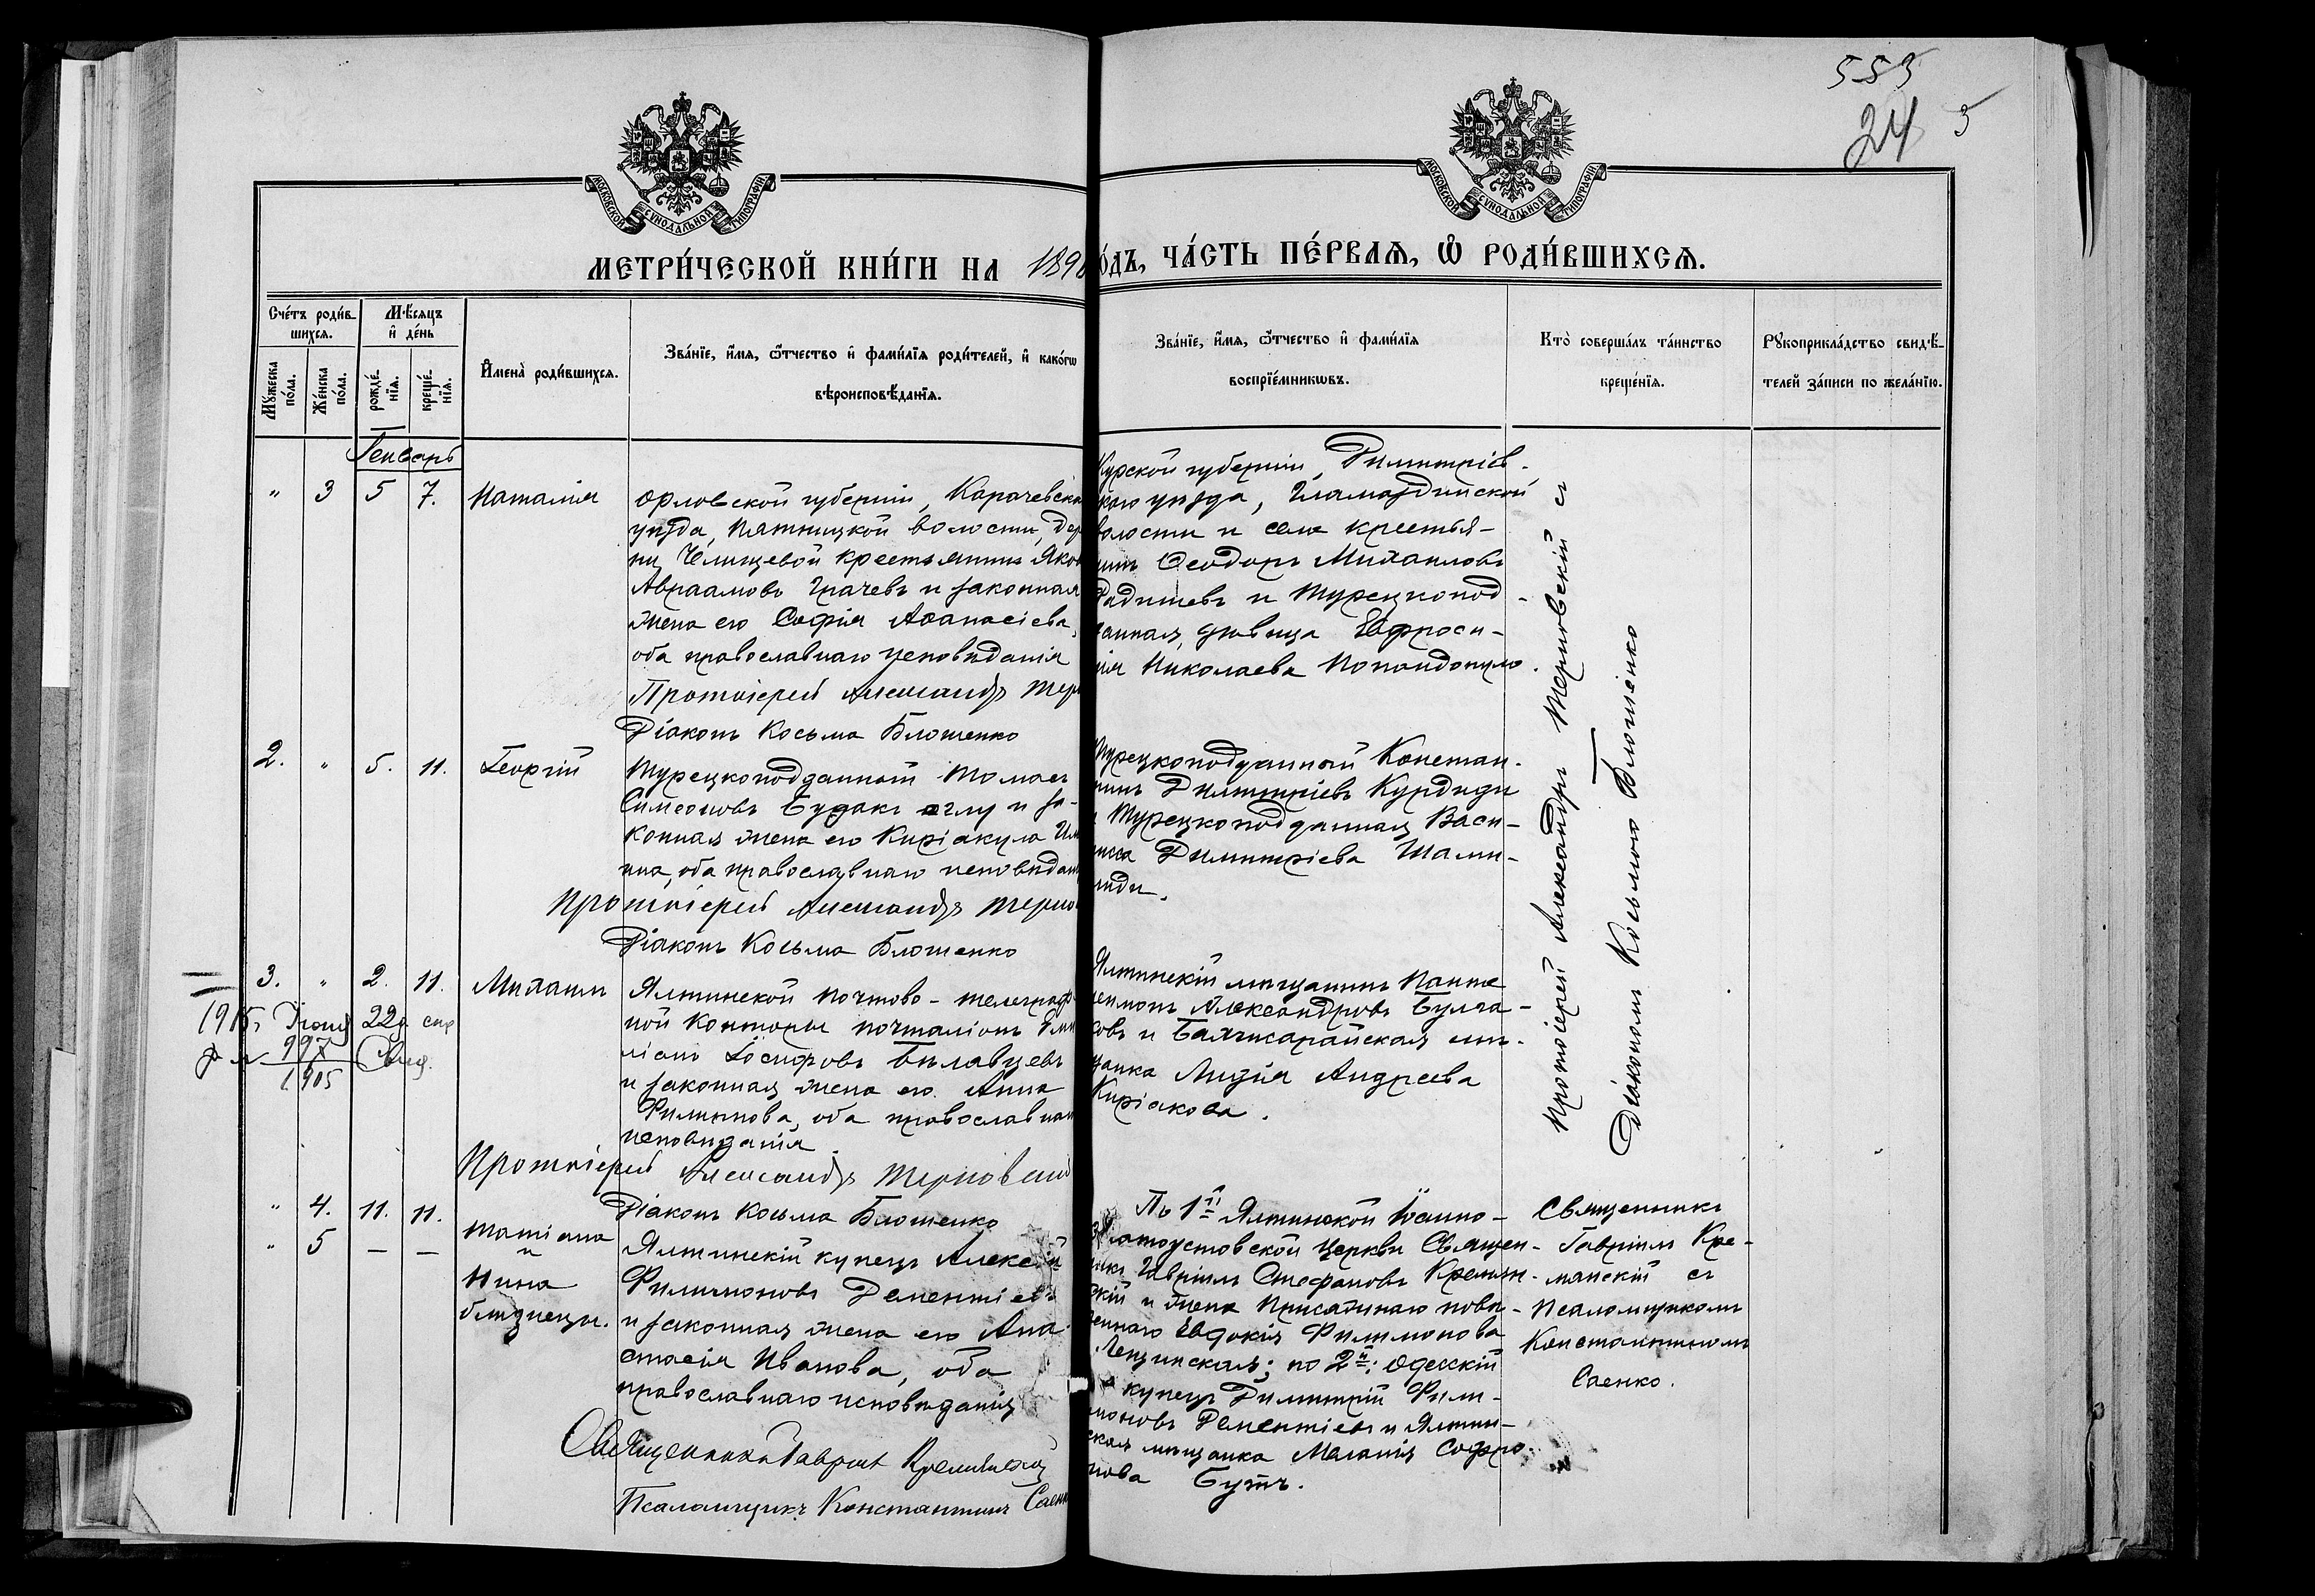 553
24 3
МОСКОВСКОЙ СУНОДАЛЬНОЙ ТИПОГРАФІИ
МОСКОВСКОЙ СУНОДАЛЬНОЙ ТИПОГРАФІИ
МЕТРИ́ЧЕСКОЙ КНИ́ГИ НА 189
О́ДЪ, ЧА́СТЬ ПЕ́РВАѦ, Ѡ҆ РОДИ́ВШИХСѦ.
Сче́тъ роди́в-
шихсѧ.
Мꙋ́жеска по́ла.
Же́нска по́ла.
Мѣ́сѧцъ
и҆ де́нь
рожде́-
нїѧ.
креще́-
нїѧ.
И҆мена̀ роди́вшихсѧ.
Зва́нїе, и҆́мѧ, ѻ҆́тчество и҆ фами́лїѧ роди́телей, и҆ како́гѡ
вѣроисповѣ́данїѧ.
Зва́нїе, и҆́мѧ, ѻ҆́тчество и҆ фами́лїѧ
воспрїе́мникѡвъ.
Кто̀ соверша́лъ та́инство
креще́нїѧ.
Рꙋкоприкла́дство свидѣ́-
телей за́писи по жела́нїю.
Генварь
" 3 5 7. Наталія
Орловской губерніи, Карачевска
уѣзда, Пятницкой волости, дер
ни Челищевой крестьянинъ Яков
Авраамовъ Грачевъ и законная
жена его Софія Аѳанасіева,
оба православнаго исповѣданія
Протоіерей Александръ Терн
Діаконъ Косьма Блошенко
Курской губерніи, Димитріев-
каго уѣзда,
волости и села крестья-
нинъ Ѳеодоръ Михаиловъ
и Турецкопод-
данная, дѣвица Евфроси-
нія Николаева Попандопуло.
Протоіерей Александръ Терновскій съ
Діакономъ Косьмою Блошенко
2. " 5. 11. Георгій
Турецкоподданный Томасъ
Симеоновъ Будакъ оглу и за-
конная жена его Киріакула
на, оба православнаго исповѣдан
Протоіерей Александръ Терно
Діаконъ Косьма Блошенко
Турецкоподданный Констан-
тинъ Димитріевъ Курдиди
и Турецкоподданная Васи-
лисса Димитріева Шами-
лиди.
3. " 2. 11. Михаилъ
1905 Іюня 22д спр
997
1905
Ялтинской почтово-телеграф
ной конторы почталіонъ Эми
ліанъ Іосифовъ Билавцевъ
и законная жена его Анна
Филиппова, оба православнаго
исповѣданія.
Протоіерей Александръ Терновскій
Діаконъ Косьма Блошенко
Ялтинскій мѣщанинъ Панте
леимонъ Александровъ Булга-
ковъ и Бахчисарайская мѣ-
щанка Лидія Андреева
Киріакова.
" 4. 11. 11. Татіана
" 5 – – и
Нина
близнецы.
Ялтинскій купецъ Алексѣй
Филимоновъ Дементіевъ
и законная жена его Ана-
стасія Иванова, оба
православнаго исповѣданія
Священникъ Гавріилъ Кремянскій
Псаломщикъ Константинъ Саенко
По 1й Ялтинской Іоанно-
Златоустовской церкви Священ-
никъ Гавріилъ Стефановъ Кремян-
скій и жена Присяжнаго повѣ-
реннаго Евдокія Филимонова
Лещинская; по 2й: Одесскій
купецъ Димитрій Фили-
моновъ Дементіевъ и Ялтин-
ская мѣщанка Меланія Софро-
нова Бутъ.
Священникъ
Гавріилъ Кре-
мянскій съ
Псаломщикомъ
Константиномъ
Саенко.